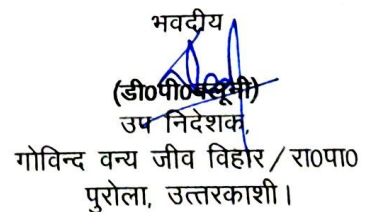 भवदीय
(डी०पी०बलूनी)
उप निदेशक,
गोविन्द वन्य जीव विहार / रा०पा०
पुरोला, उत्तरकाशी।